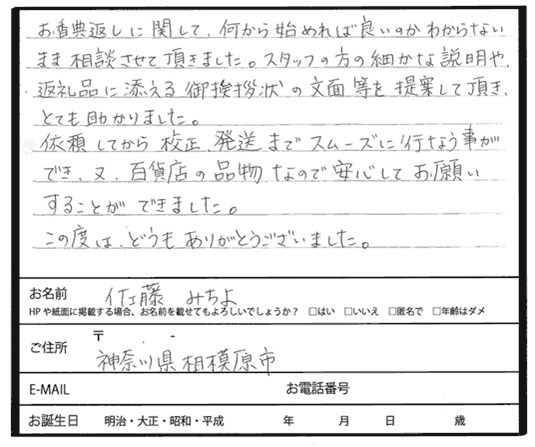 お香典返しに関して、何から始めれば良いのかわからない
まま相談させて頂きました。スタッフの方の細かな説明や、
返礼品に添える御挨拶状の文面等を提案して頂き、
とても助かりました。
依頼してから校正、発送までスムーズに行なう事が
でき、又、百貨店の品物なので安心してお願い
することができました。
この度は、どうもありがとうございました。
お名前 佐藤 みちよ
HPや紙面に掲載する場合、お名前を載せてもよろしいでしょうか? □はい □いいえ □匿名で □年齢はダメ
〒 . -
ご住所 神奈川県相模原市
E-MAIL お電話番号
お誕生日 明治・大正・昭和・平成 年 月 日 歳